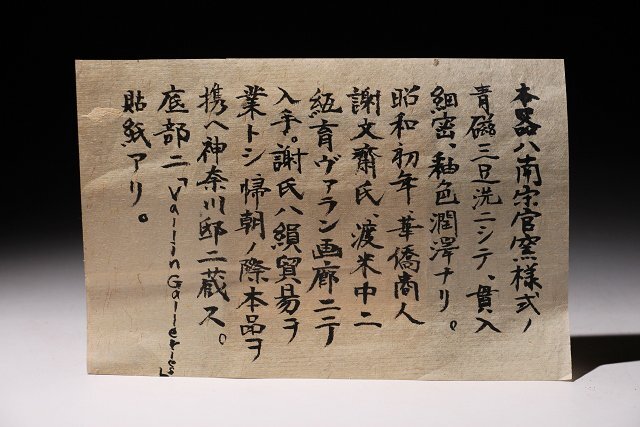 本器ハ南宋官窯様式ノ
青磁三足洗ニシテ、貫入
細密、釉色潤澤ナリ。
昭和初年、華僑商人
謝文齋氏、渡米中ニ
紐育ヴァラン画廊ニテ
入手。謝氏ハ絹貿易ヲ
業トシ帰朝ノ際本品ヲ
携ヘ神奈川邸ニ蔵ス。
底部ニ「Vallin Galleries」
貼紙アリ。